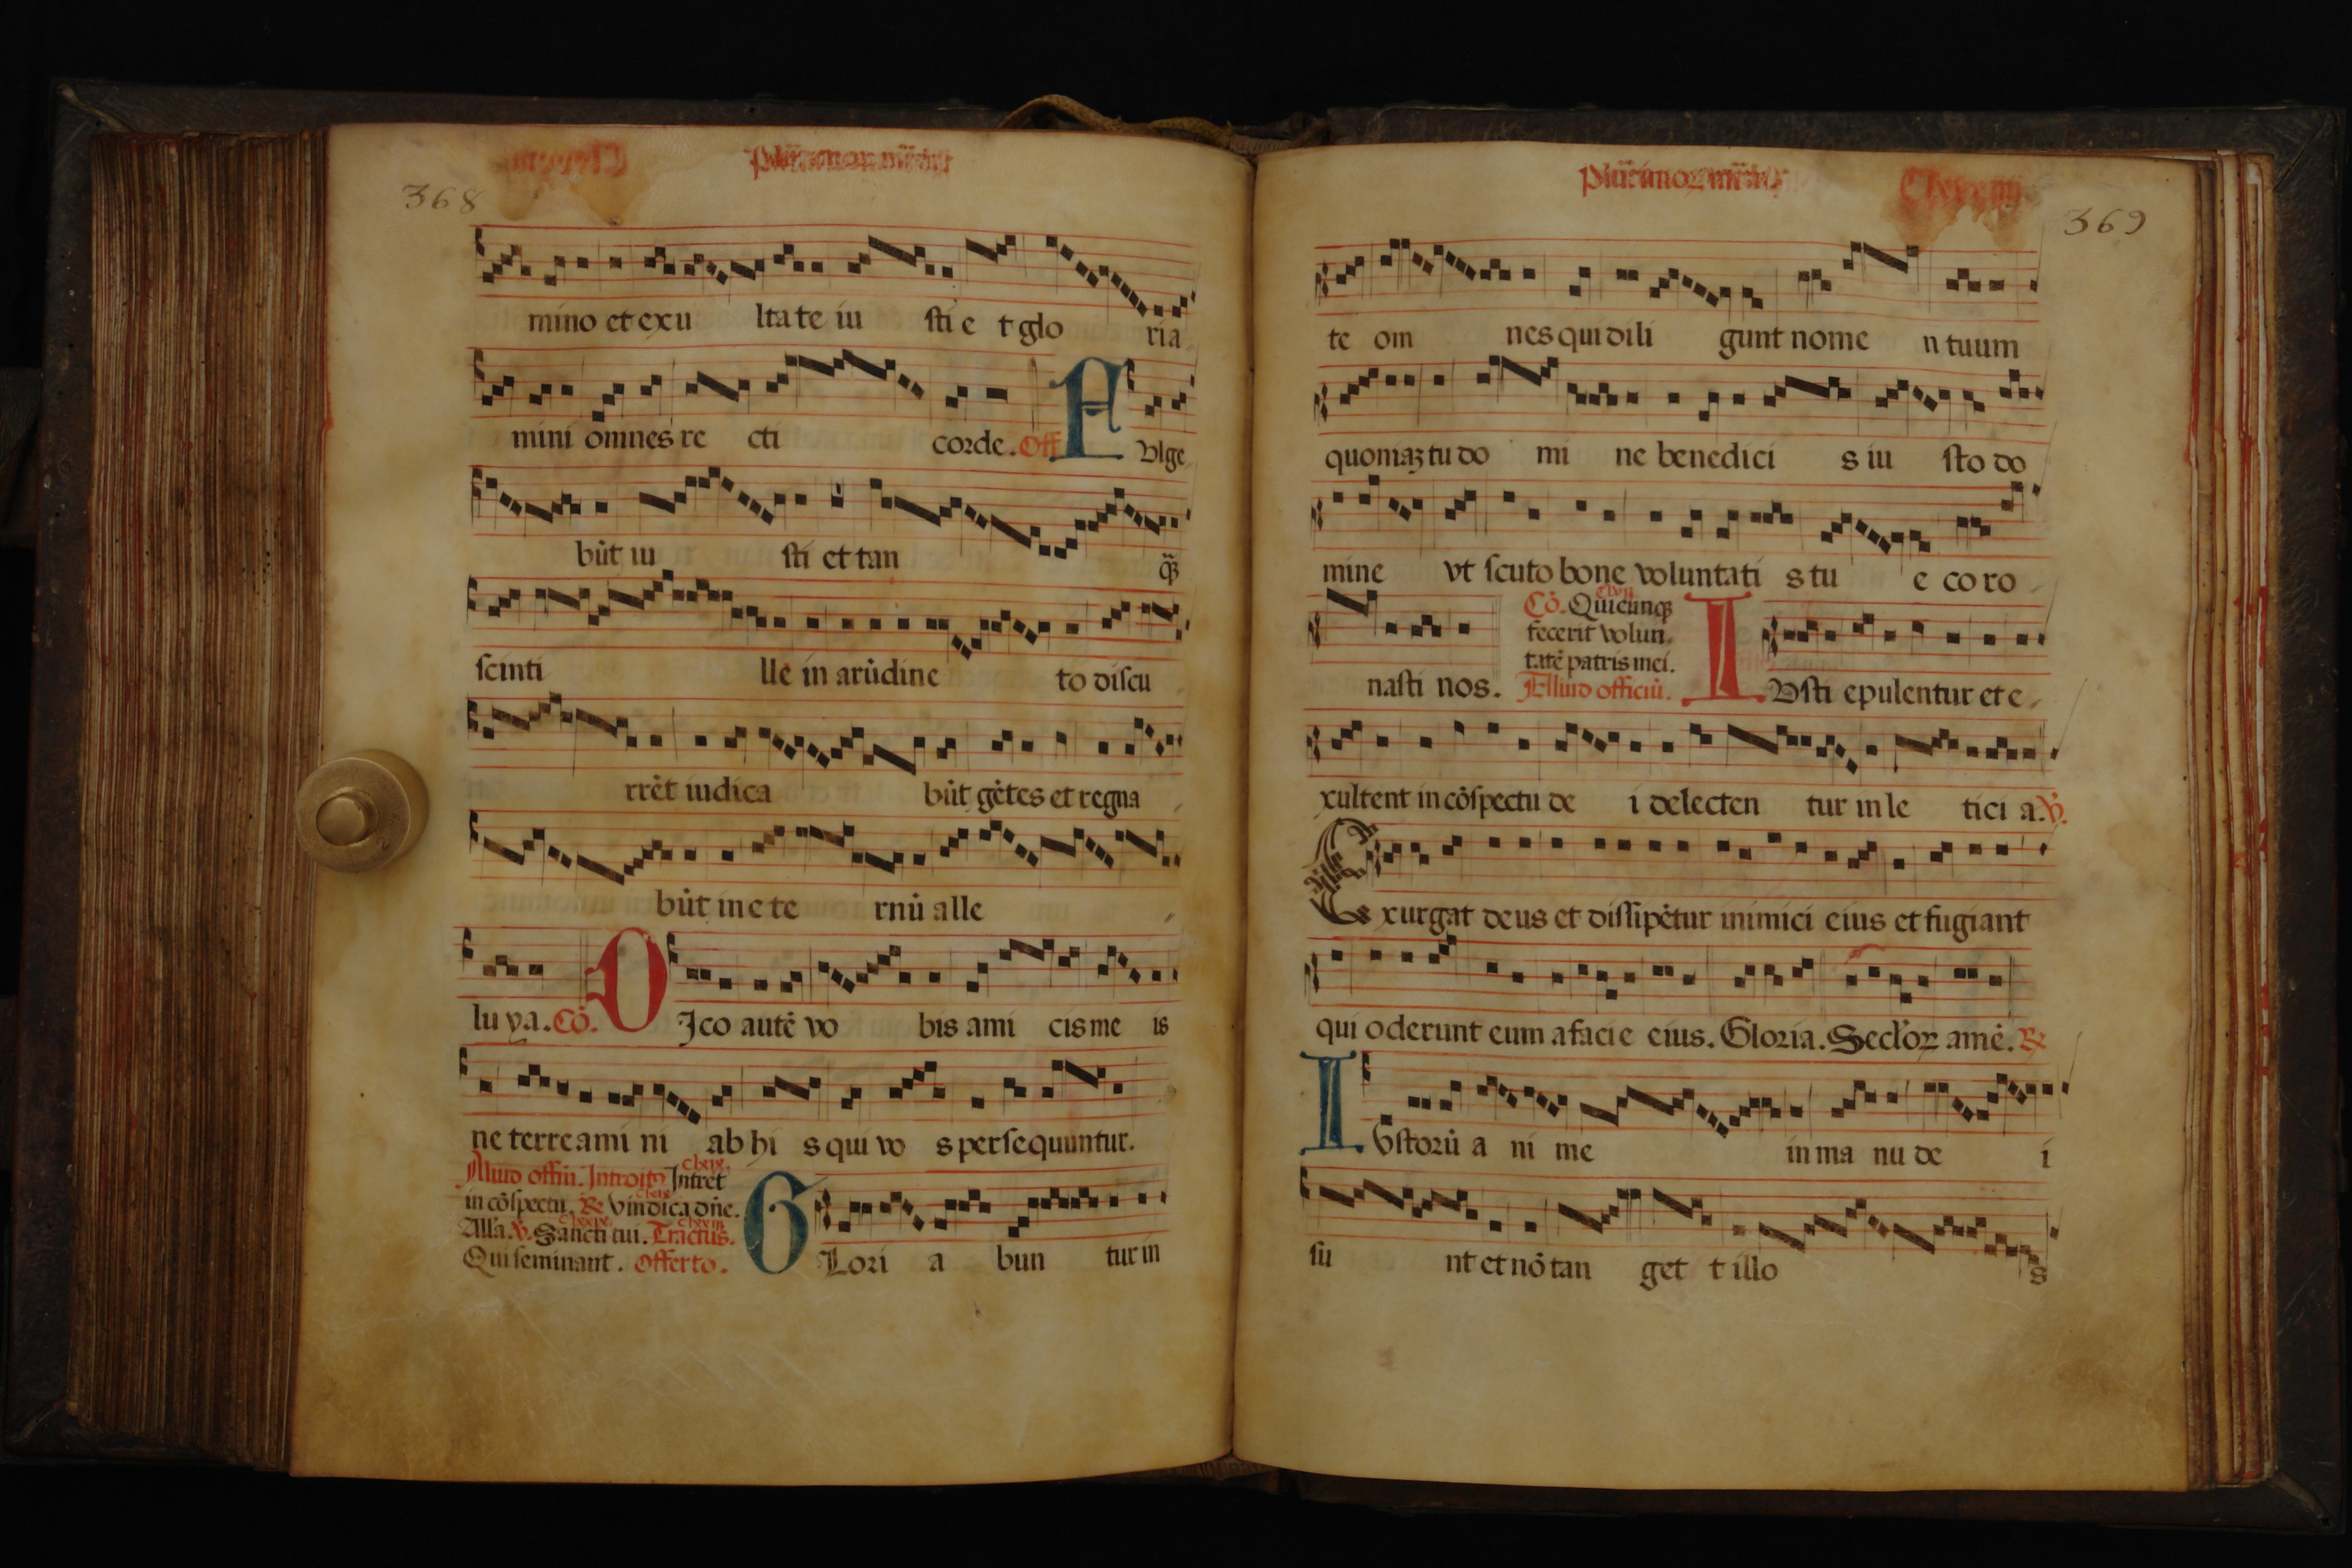 368
mino et exu ltate iu sti e t glo ria
mini omnes re cti corde. Off F Vlge
bu̇t iu sti et tan q̈ꝫ
scinti lle in aru̇dine to discu
rrėt iudica bu̇t gėtes et regna
bu̇t in ete rnu̇ alle
lu ya. Cȯ. D Ico autė vo bis ami cis me is
ne terreami ni ab hi s qui vo s persequuntur.
Aliud offiu̇. Introitꝰ Intrėt
in cȯspectu. ℟ Vindica dn̄e.
Alľa. ℣. Sancti tui. Tractus.
Qui seminant. Offerto. G Lori a bun tur in
369
te om nes qui dili gunt nome n tuum
quoniaꝫ tu do mi ne benedici s iu sto do
mine vt scuto bone voluntati s tu e co ro
nasti nos. Cȯ. Quicunqꝫ
fecerit volun
tatė patris mei.
Aliud officiu̇. I Vsti epulentur et e
xultent in cȯspectu de i delecten tur in le tici a. ℣.
Exurgat deus et dissipėtur inimici eius et fugiant
qui oderunt eum a facie eius. Gloria. Seclꝰoꝝ amė. ℟
I Vstoru̇ a ni me in ma nu de i
su nt et nȯ tan get t illo s